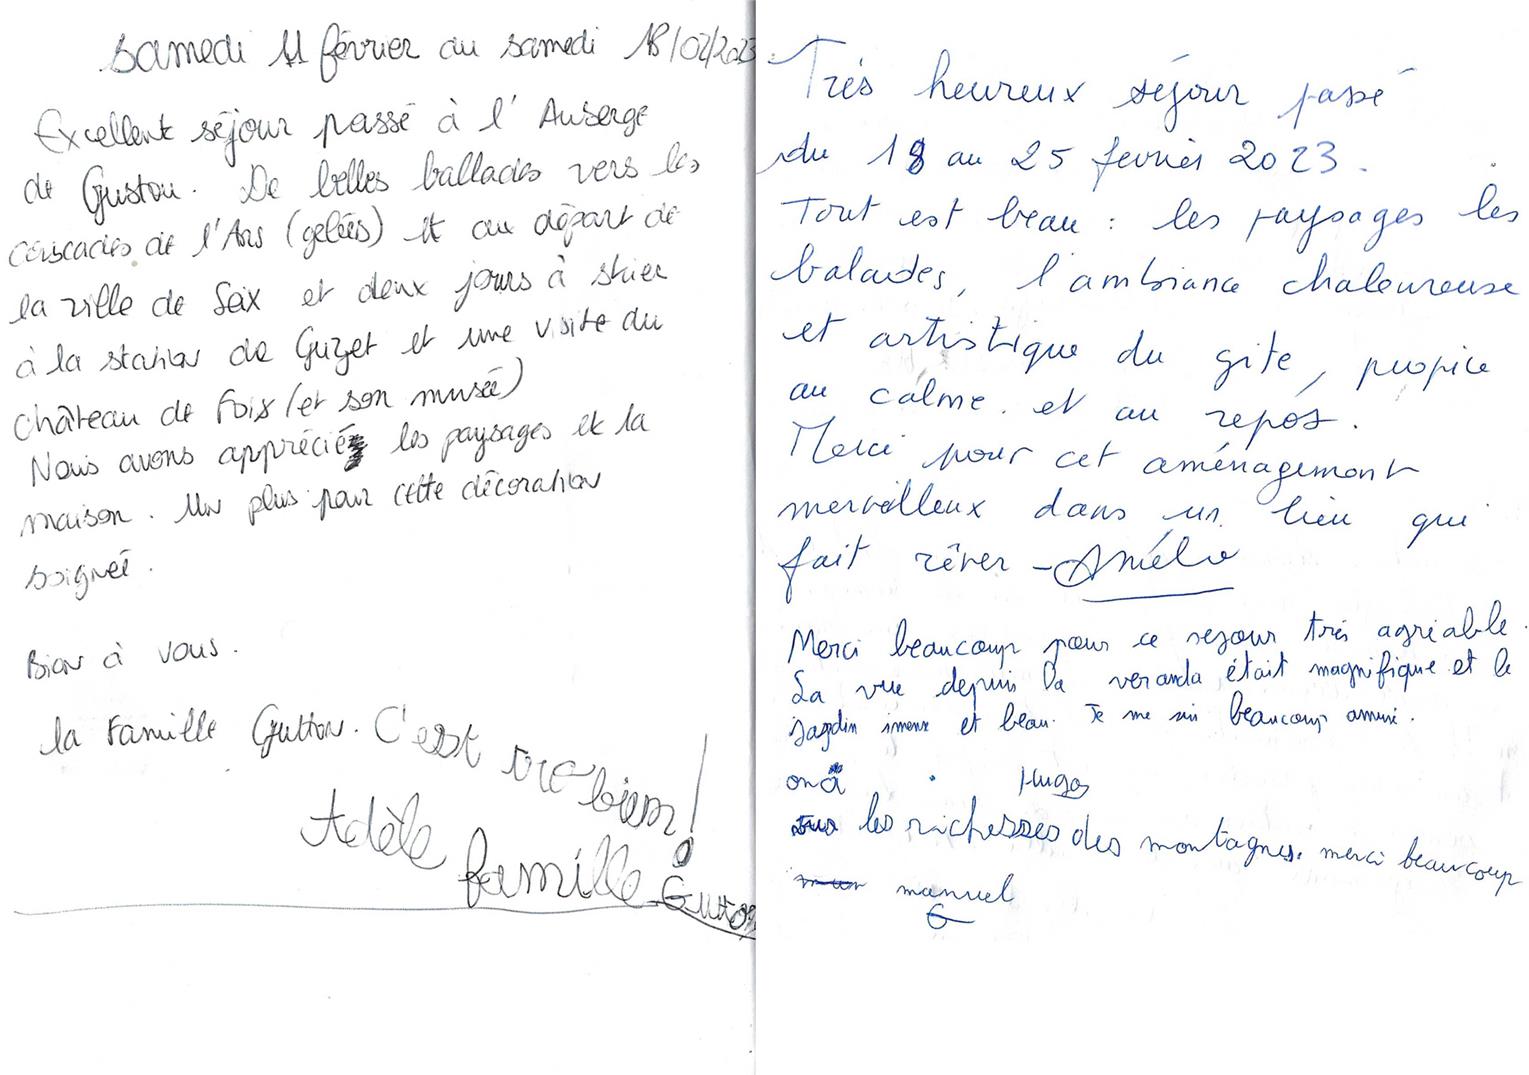 Samedi 11 février au samedi 18/02/2023
Excellent séjour passé à l'Auberge
de Guston. De belles ballades vers les
cascades de l'Ars (gelées) et au départ de
la ville de Seix et deux jours à skier
à la station de Guzet et une visite du
château de Foix (et son musée)
Nous avons apprécié les paysages et la
maison. Un plus pour cette décoration
soignée.
Bien à vous.
la Famille Gutton. C'est trè bien!
Adèle
famille Gutton
Très heureux séjour passé
du 18 au 25 fevrier 2023.
Tout est beau : les paysages les
balades, l'ambiance chaleureuse
et artistique du gite, propice
au calme et au repos.
Merci pour cet aménagement
merveilleux dans un lieu qui
fait rêver - Amélie
Merci beaucoup pour ce sejour très agréable.
La vue depuis la veranda était magnifique et le
jardin imense et beau. Je me sui beaucoup amusé.
Hugo
on a
les richesses des montagnes. merci beaucoup
manuel
G